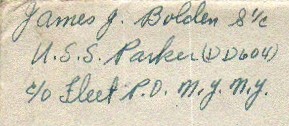 James J. Bolden S 1/c
U.S.S. Parker (DD604)
c/o Fleet P.O. N.Y. N.Y.